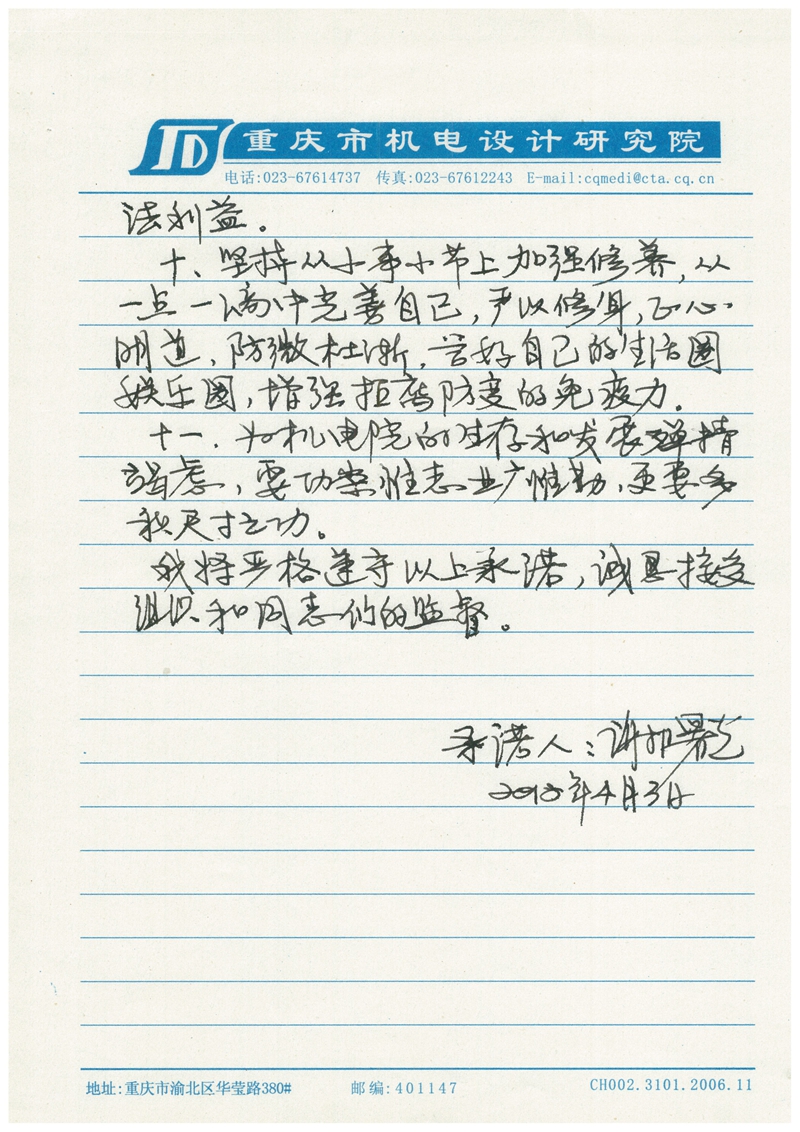 重庆市机电设计研究院
电话:023-67614737 传真:023-67612243 E-mail:cqmedi@cta.cq.cn
法利益。
十、坚持从小事小节上加强修养,从
一点一滴中完善自己,严以修身,正心
明道,防微杜渐,管好自己的生活圈
娱乐圈,增强拒腐防变的免疫力。
十一、为机电院的生存和发展殚精
竭虑,要功崇惟志业广惟勤,更要多
积尺寸之功。
我将严格遵守以上承诺,诚恳接受
组织和同志们的监督。
承诺人:
年4月3日
地址:重庆市渝北区华莹路380# 邮编:401147 CH002.3101.2006.11